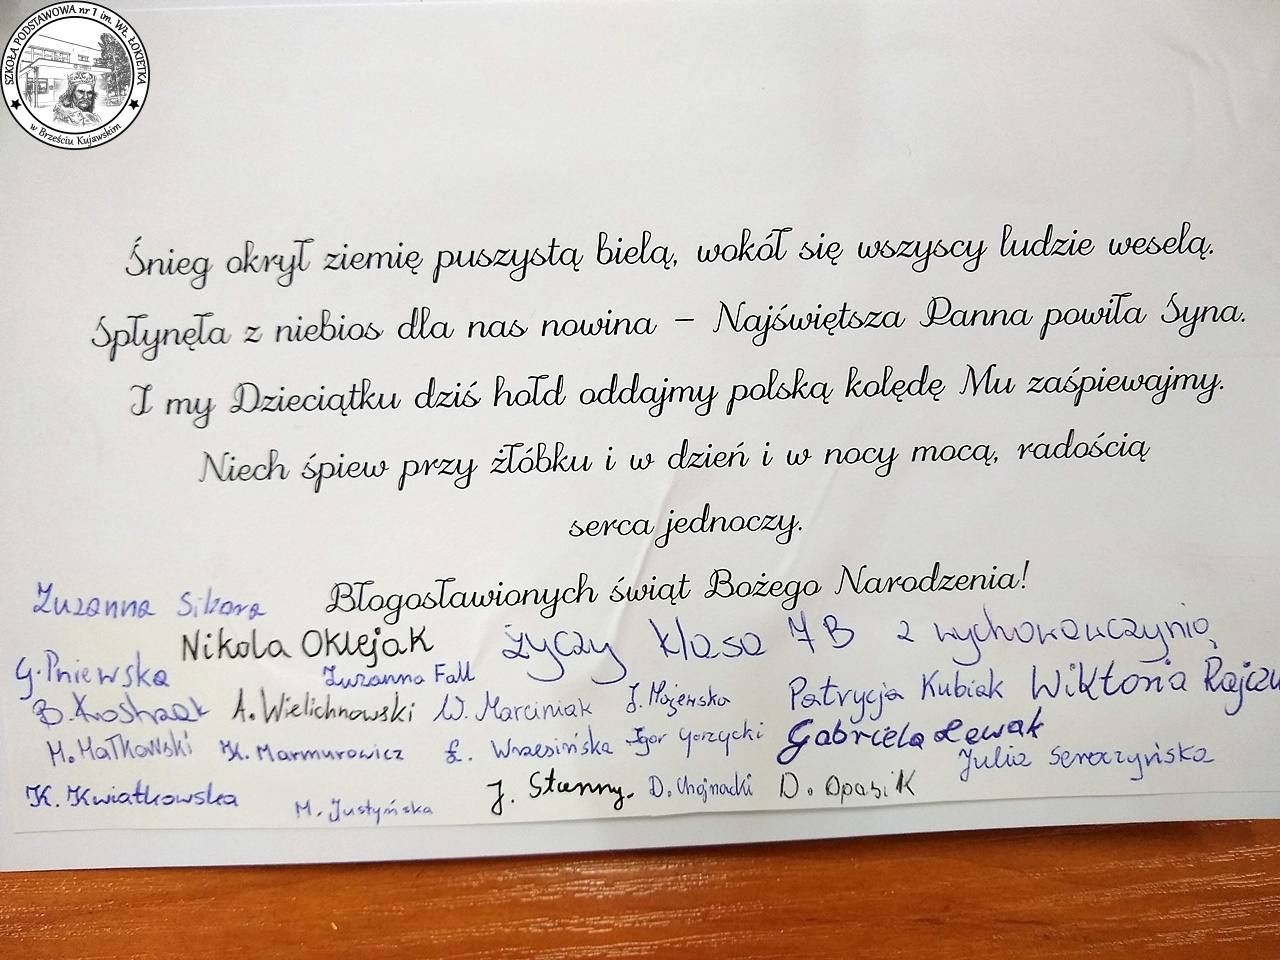 SZKOŁA PODSTAWOWA nr 1 im. WŁ. ŁOKIETKA
w Brześciu Kujawskim
Śnieg okrył ziemię puszystą bielą, wokół się wszyscy ludzie weselą.
Spłynęła z niebios dla nas nowina – Najświętsza Panna powiła Syna.
I my Dzieciątku dziś hołd oddajmy polską kolędę Mu zaśpiewajmy.
Niech śpiew przy żłóbku i w dzień i w nocy mocą, radością
serca jednoczy.
Błogosławionych świąt Bożego Narodzenia!
Zuzanna Sikora
Nikola Oklejak życzy klasa 7B z wychowawczynią
G. Pniewska Zuzanna Fall Patrycja Kubiak Wiktoria
B. A. Wielichnowski W. Marciniak J. Majewska
M. Małkowski K. Marmurowicz Ł. Wrzesińska Igor Gorzycki Gabriela Lewak
Julia Seroczyńska
K. Kwiatkowska M. Justyńska J. Stanny. D. Chojnacki D. Opasik